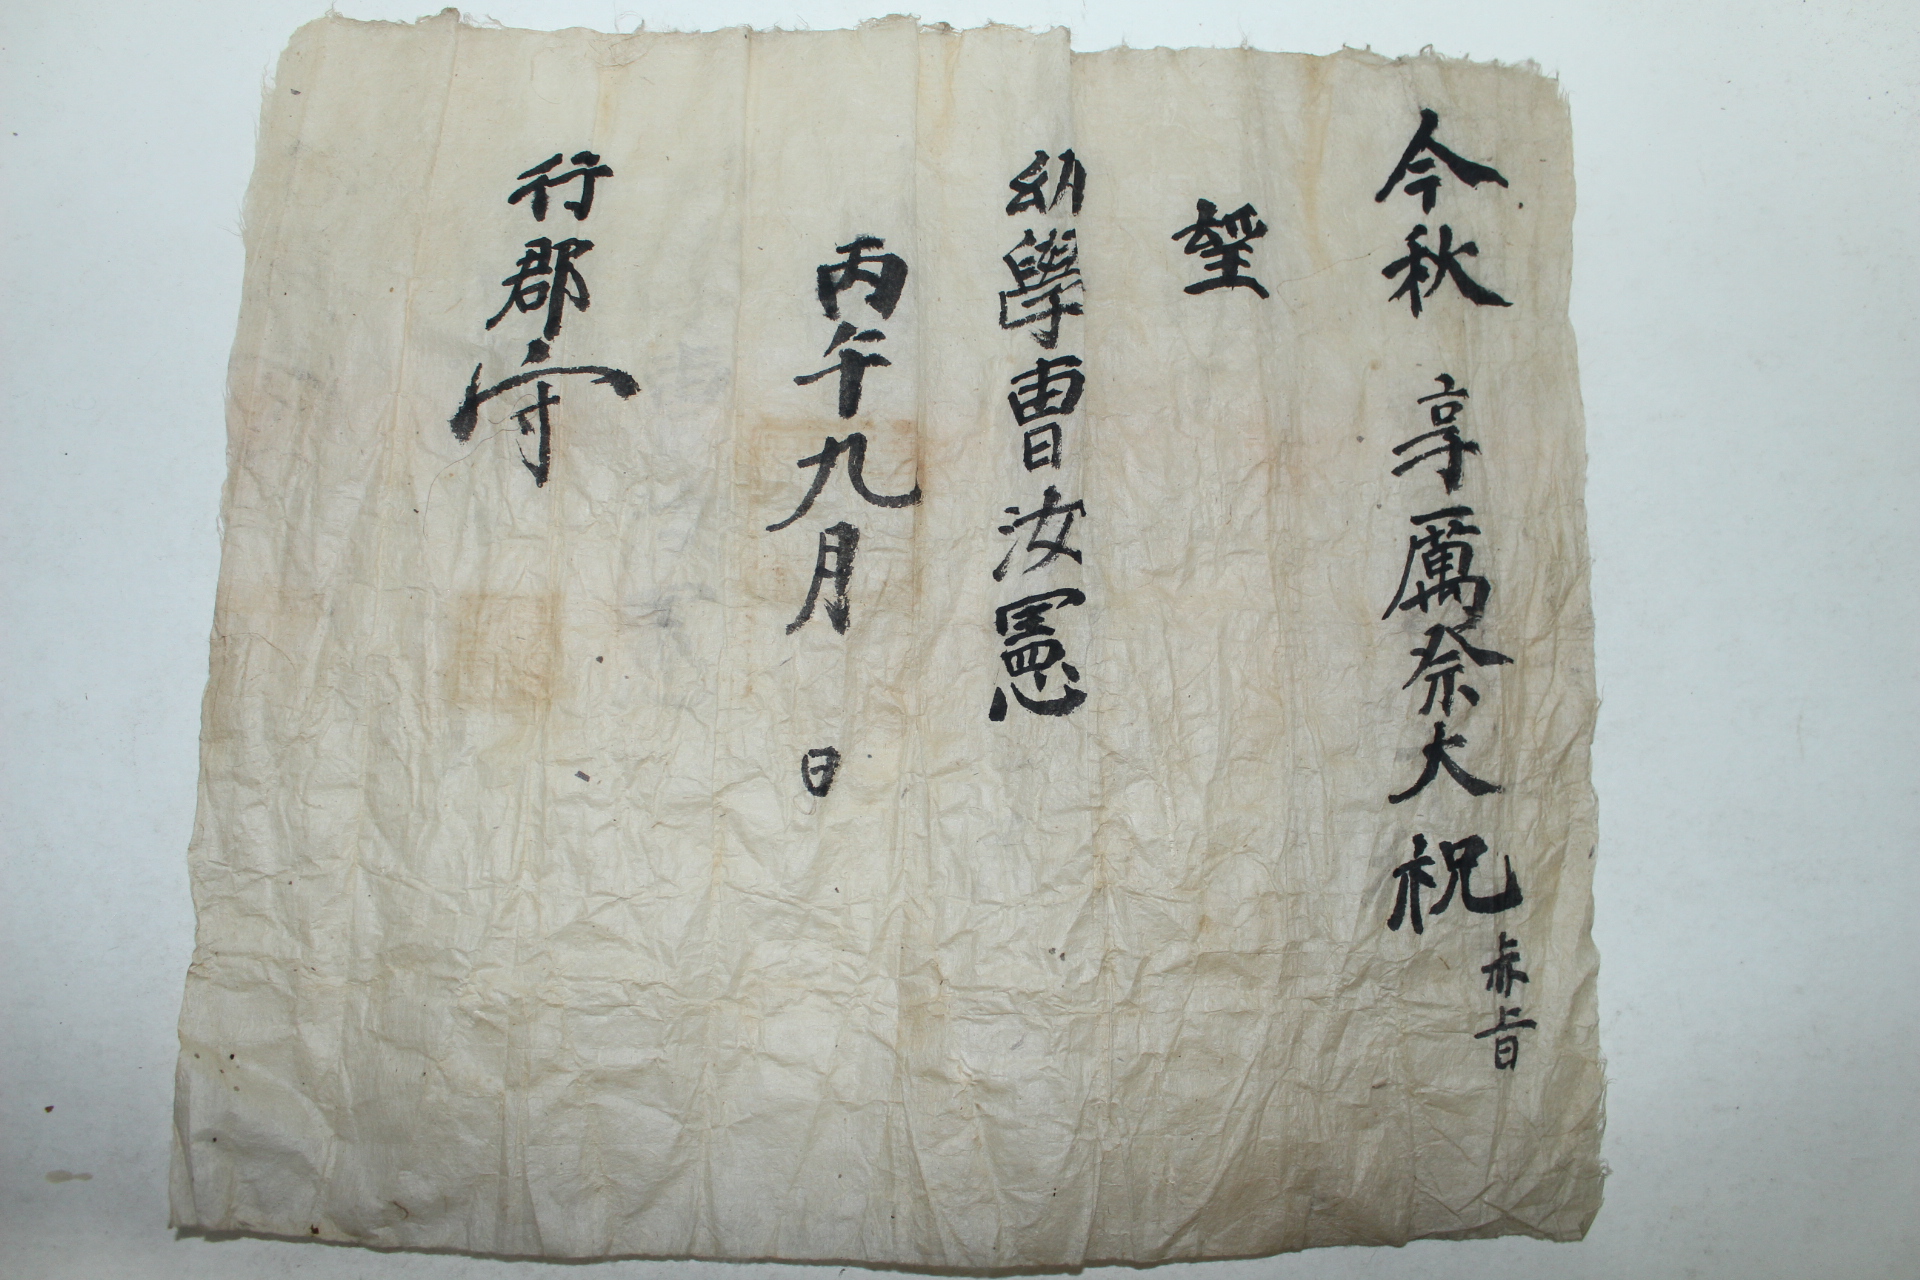 今秋 享厲祭大祝
望
幼學曺汝憲
丙午九月 日
行郡守